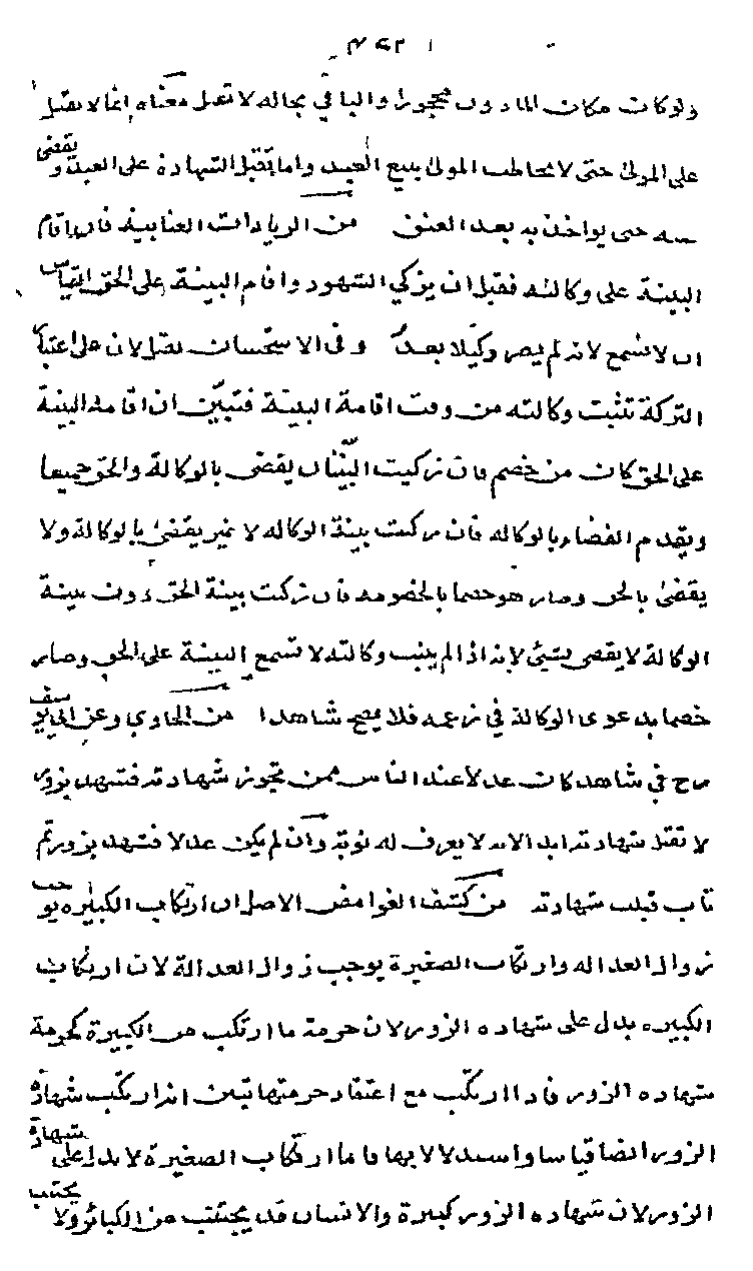 ولو كان مكان المأذون محجورا والباقي بحاله لا تقبل معناه انما لا يقبل
على المولى حتى لا يخاطب المولى ببيع العبد واما تقبل الشهادة على العبد ويقضى
حتى يواخذ به بعد العتق من الزيادات العتابية فان اقام
البينة على وكالته فقبل ان يزكي الشهود واقام البينة على الحق القياس
ان لا تسمع لانه لم يصر وكيلا بعد وفي الاستحسان تقبل لان على اعتبار
التزكية تثبت وكالته من وقت اقامة البينة فتبين ان اقامة البينة
على الحق كان من خصم فان زكيت البينتان يقضى بالوكالة والحق جميعا
ويقدم القضاء بالوكاله فان زكيت بينة الوكاله لا غير يقضى بالوكالة ولا
يقضى بالحق وصار هو خصما بالخصومه فان زكت بينة الحق دون بينة
الوكالة لا يقضى بشيئ لانه اذا لم يثبت وكالته لا تسمع البينة على الحق وصار
خصما بدعوى الوكالة في زعمه فلا يصح شاهدا من الحاوي وعن ابي يوسف
رح في شاهد كان عدلا عند الناس ممن تجوز شهادته فشهد بزور
لا تقبل شهادته ابدا لانه لا يعرف له توبة وان لم يكن عدلا فشهد بزور ثم
تاب قبلت شهادته من كشف الغوامض الاصل ان ارتكاب الكبيره يوجب
زوال العداله وارتكاب الصغيرة يوجب زوال العدالة لان ارتكاب
الكبيره يدل على شهاده الزور لان حرمة ما ارتكب من الكبيرة كحرمة
شهاده الزور فاذا ارتكب مع اعتقاد حرمتها تبين انه ارتكب شهادة
الزور ايضا قياسا واستدلالا بها فاما ارتكاب الصغيرة لا يدل على شهادة
الزور لان شهاده الزور كبيرة والانسان قد يجتنب عن الكبائر ولا يجتنب